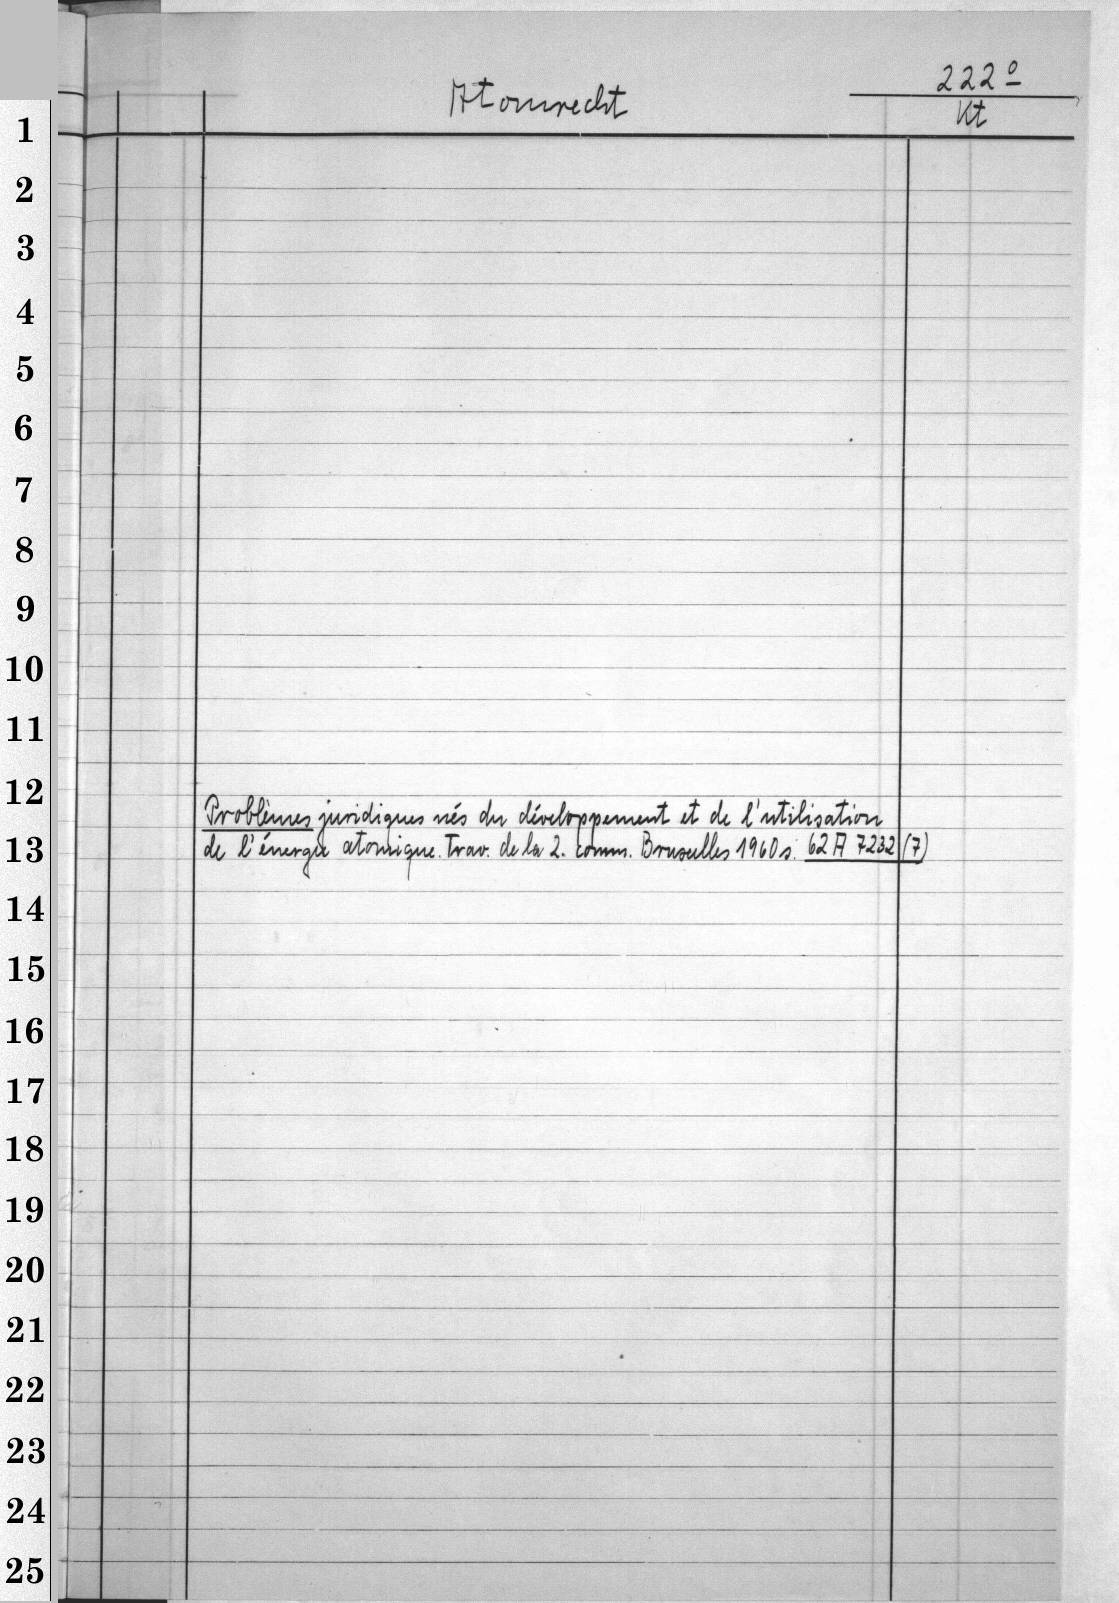 Atomrecht
222º
Kt
1
2
3
4
5
6
7
8
9
10
11
12
Problèmes juridiques nés du développement et de l'utilisation
13
de l'énergie atomique. Trav. de la 2. comm. Bruxelles 1960 s. 62 A 7232 (7)
14
15
16
17
18
19
20
21
22
23
24
25